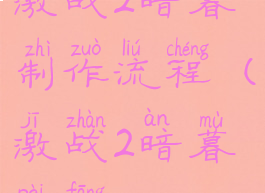 激战2暗暮
zhì zuò liú chéng
制作流程（
jī zhàn àn mù
激战2暗暮
pèi fāng